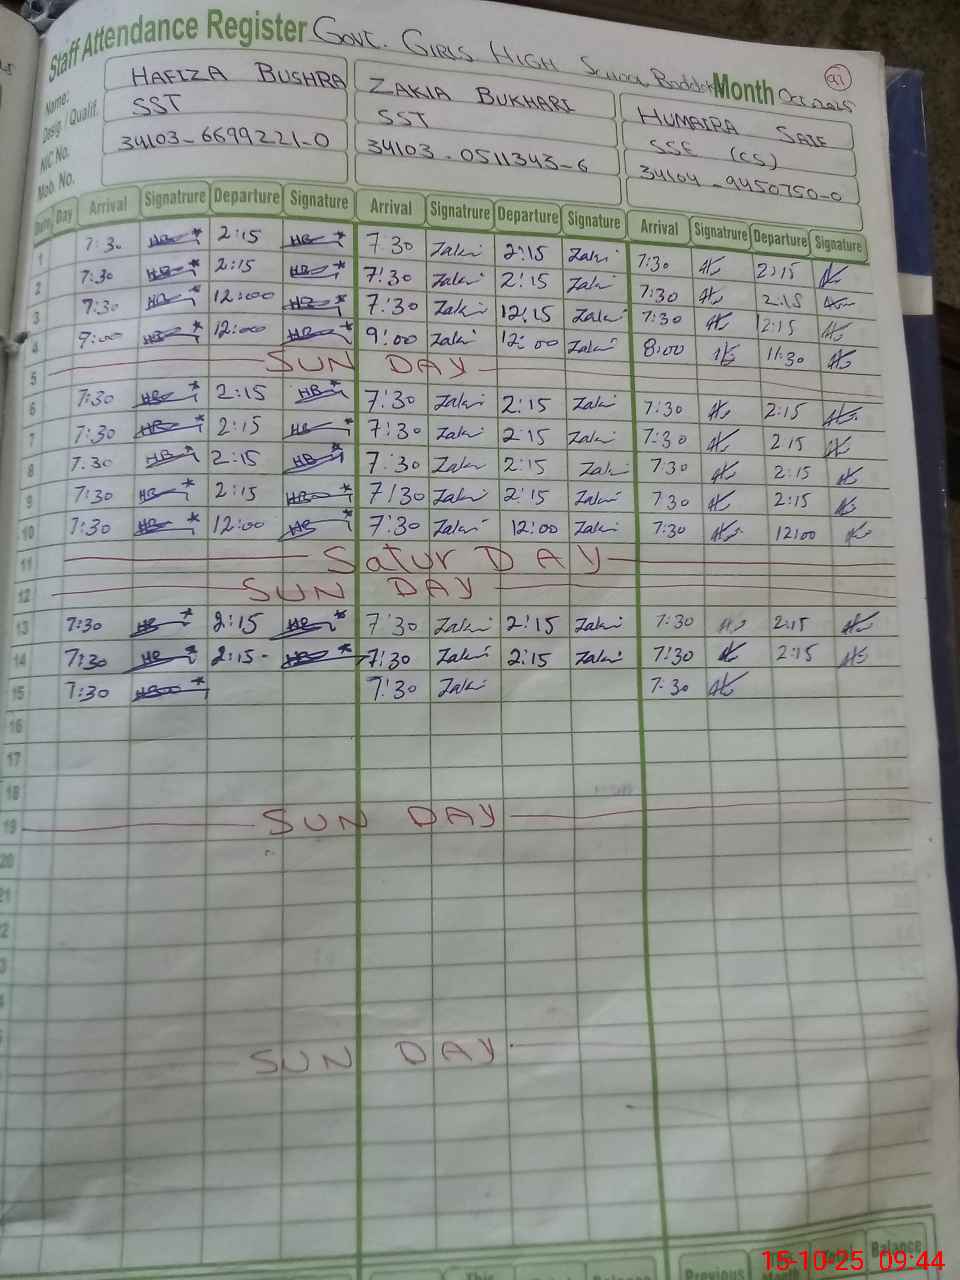 Staff Attendance Register Govt. Girls High School Month Oct. 2025
Name: HAFIZA BUSHRA ZAKIA BUKHARI HUMAIRA SAIF
Desig. / Qualif. SST SST SSE (CS)
NIC No. 34103-6699221-0 34103-0511343-6 34104-9450750-0
Mob. No.
Date Day Arrival Signatrure Departure Signature Arrival Signatrure Departure Signature Arrival Signatrure Departure Signature
1 7:30 HB 2:15 HB 7:30 Zaki 2:15 Zaki 7:30 2:15
2 7:30 HB 2:15 HB 7:30 Zaki 2:15 Zaki 7:30 2:15
3 7:30 HB 12:00 HB 7:30 Zaki 12:15 Zaki 7:30 12:15
4 9:00 HB 12:00 HB 9:00 Zaki 12:00 Zaki 8:00 11:30
5 SUN DAY
6 7:30 HB 2:15 HB 7:30 Zaki 2:15 Zaki 7:30 2:15
7 7:30 HB 2:15 HB 7:30 Zaki 2:15 Zaki 7:30 2 15
8 7:30 HB 2:15 HB 7:30 Zaki 2:15 Zaki 7:30 2:15
9 7:30 HB 2:15 HB 7:30 Zaki 2:15 Zaki 7:30 2:15
10 7:30 HB 12:00 HB 7:30 Zaki 12:00 Zaki 7:30 12:00
11 Satur DAY
12 SUN DAY
13 7:30 HB 2:15 HB 7:30 Zaki 2:15 Zaki 7:30 2:15
14 7:30 HB 2:15- HB 7:30 Zaki 2:15 Zaki 7:30 2:15
15 7:30 HB 7:30 Zaki 7:30
16
17
18
19 SUN DAY
20
21
22
SUN DAY
Previous Total Balance
15-10-25 09:44